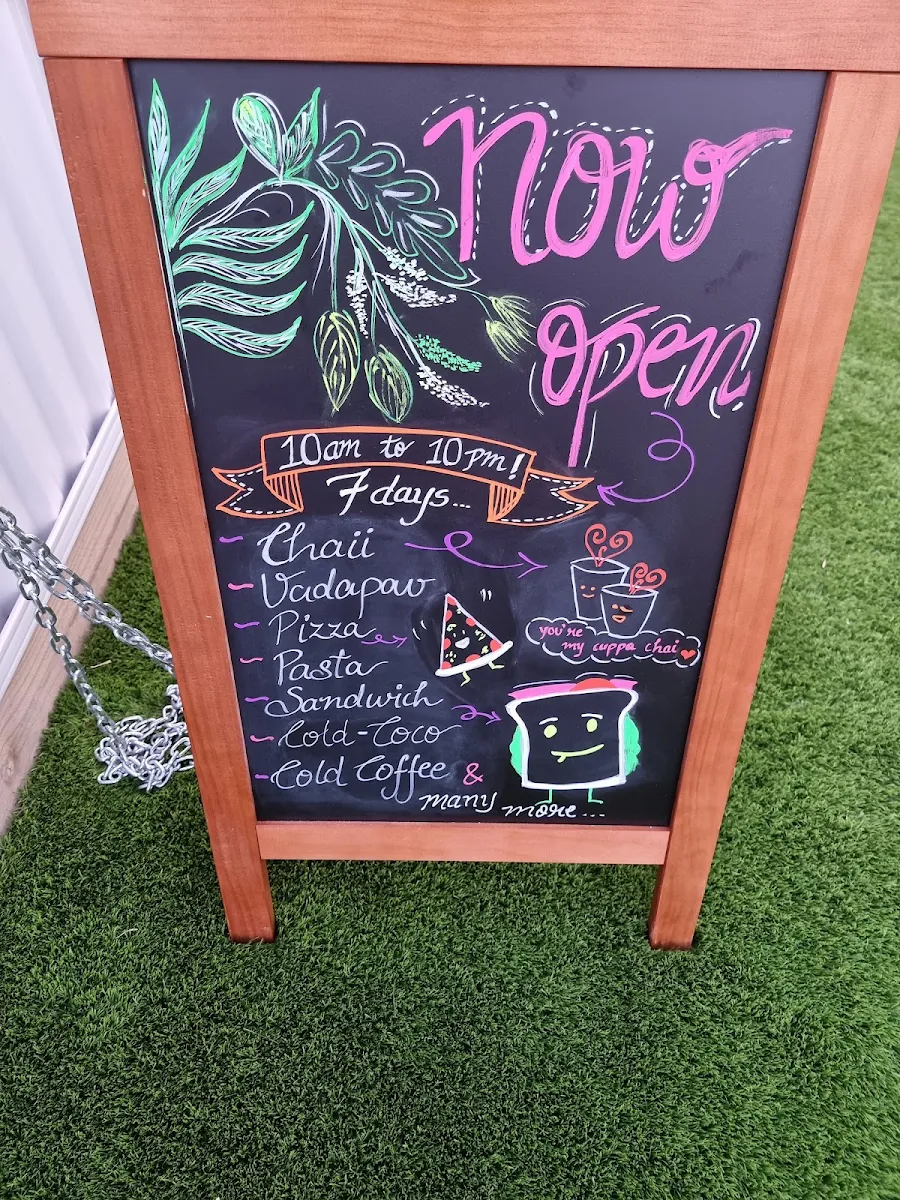 now
open
10am to 10pm!
7 days...
Chaii
Vadapav
you're
my cuppa chai
Pizza
Pasta
Sandwich
Cold-Coco
Cold Coffee &
many more...